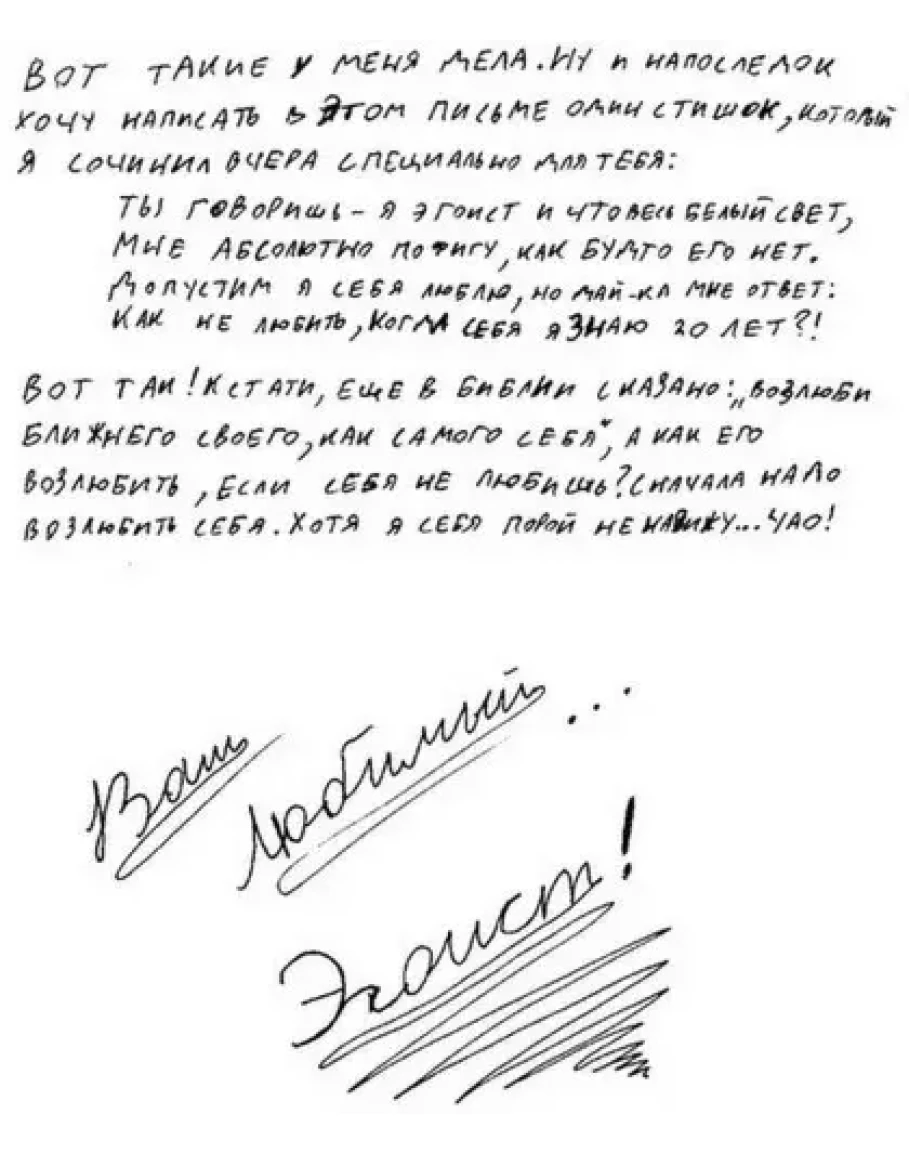 ВОТ ТАКИЕ У МЕНЯ ДЕЛА. НУ И НАПОСЛЕДОК
ХОЧУ НАПИСАТЬ В ЭТОМ ПИСЬМЕ ОДИН СТИШОК, КОТОРЫЙ
Я СОЧИНИЛ ВЧЕРА СПЕЦИАЛЬНО ДЛЯ ТЕБЯ:
ТЫ ГОВОРИШЬ – Я ЭГОИСТ И ЧТО ВЕСЬ БЕЛЫЙ СВЕТ,
МНЕ АБСОЛЮТНО ПО ФИГУ, КАК БУДТО ЕГО НЕТ.
ДОПУСТИМ Я СЕБЯ ЛЮБЛЮ, НО ДАЙ-КА МНЕ ОТВЕТ:
КАК НЕ ЛЮБИТЬ, КОГДА СЕБЯ Я ЗНАЮ 20 ЛЕТ?!
ВОТ ТАК! КСТАТИ, ЕЩЕ В БИБЛИИ СКАЗАНО: „ВОЗЛЮБИ
БЛИЖНЕГО СВОЕГО, КАК САМОГО СЕБЯ", А КАК ЕГО
ВОЗЛЮБИТЬ, ЕСЛИ СЕБЯ НЕ ЛЮБИШЬ? СНАЧАЛА НАДО
ВОЗЛЮБИТЬ СЕБЯ. ХОТЯ Я СЕБЯ ПОРОЙ НЕНАВИЖУ... ЧАО!
Ваш Любимый...
Эгоист!